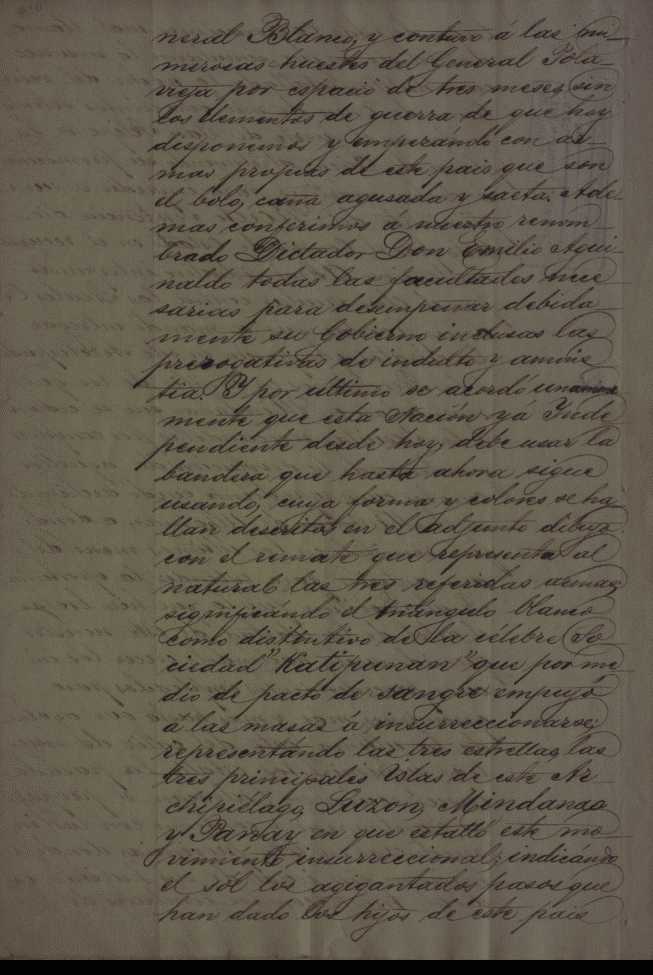 neral Blanco, y contuvo á las nu-
merosas huestes del General Pola-
vieja por espacio de tres meses, sin
los elementos de guerra de que hoy
disponemos y empezando con ar-
mas propias de este pais que son
el bolo, caña agusada y saeta. Ade-
mas conferimos á nuestro renom-
brado Dictador Don Emilio Agui-
naldo todas las facultades nece
sarias para desempeñar debida
mente su Gobierno inclusas las
prerogativas de indulto y amnis
tia. Y por ultimo se acordó unanime
mente que esta Nación yá Inde
pendiente desde hoy, debe usar la
bandera que hasta ahora sigue
usando, cuya forma y colores se ha
llan descritos en el adjunto dibujo
con el remate que representa al
natural las tres referidas armas;
significándo el triángulo blanco
como distintivo de la célebre So
ciedad "Katipunan" que por me
dio de pacto de sangre empujó
á las masas á insurreccionarse;
representando las tres estrellas, las
tres principales Islas de este Ar
chipiélago, Luzon, Mindanao
y Panay en que estalló este mo
vimiento insurreccional; indicando
el sol los agigantados pasos que
han dado los hijos de este pais